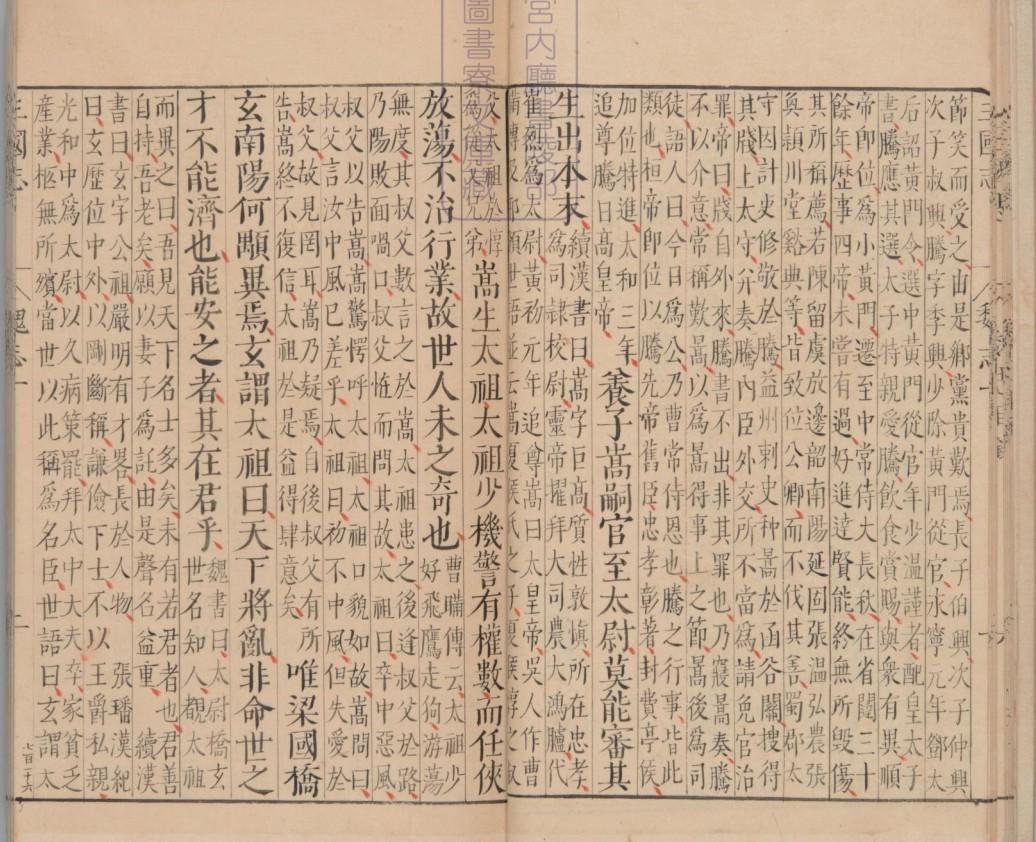 節笑而受之由是鄉黨貴歎焉長子伯興次子仲興
次子叔興騰字季興少除黃門從官永寧元年鄧太
后詔黃門令選中黃門從官年少溫謹者配皇太子
書騰應其選太子特親愛騰飲食賞賜與衆有異順
帝即位爲小黃門遷至中常侍大長秋在省闥三十
餘年歷事四帝未嘗有過好進達賢能終無所毀傷
其所稱薦若陳留虞放邊韶南陽延固張溫弘農張
奐潁川堂谿典等皆致位公卿而不伐其善蜀郡太
守因計吏修敬於騰益州刺史种暠於函谷關搜得
其牋上太守并奏騰內臣外交所不當爲請免官治
罪帝曰牋自外來騰書不出非其罪也乃寢暠奏騰
不以介意常稱歎暠以爲暠得事上之節暠後爲司
徒語人曰今日爲公乃曹常侍恩也騰之行事皆此
類也桓帝即位以騰先帝舊臣忠孝彰著封費亭侯
加位特進太和三年
追尊騰曰高皇帝
養子嵩嗣官至太尉莫能審其
生出本末
續漢書曰嵩字巨高質性敦愼所在忠孝
爲司隸校尉靈帝擢拜大司農大鴻臚代
崔烈爲太尉黃初元年追尊嵩曰太皇帝吳人作曹
瞞傳及郭頒世語並云嵩夏侯氏之子夏侯惇之叔
父太祖於惇
爲從父兄弟
嵩生太祖太祖少機警有權數而任俠
放蕩不治行業故世人未之奇也
曹瞞傳云太祖少
好飛鷹走狗游蕩
無度其叔父數言之於嵩太祖患之後逢叔父於路
乃陽敗面喎口叔父怪而問其故太祖曰卒中惡風
叔父以告嵩嵩驚愕呼太祖太祖口貌如故嵩問曰
叔父言汝中風已差乎太祖曰初不中風但失愛於
叔父故見罔耳嵩乃疑焉自後叔父有所
告嵩終不復信太祖於是益得肆意矣
唯梁國橋
玄南陽何顒異焉玄謂太祖曰天下將亂非命世之
才不能濟也能安之者其在君乎
魏書曰太尉橋玄
世名知人覩太祖
而異之曰吾見天下名士多矣未有若君者也君善
自持吾老矣願以妻子爲託由是聲名益重 續漢
書曰玄字公祖嚴明有才畧長於人物 張璠漢紀
曰玄歷位中外以剛斷稱謙儉下士不以王爵私親
光和中爲太尉以久病策罷拜太中大夫卒家貧乏
產業柩無所殯當世以此稱爲名臣世語曰玄謂太